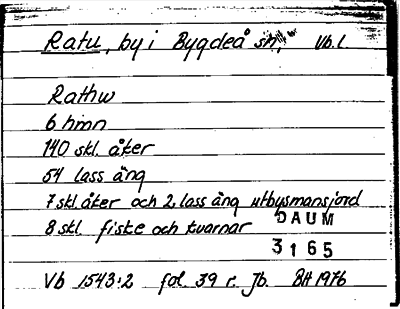 Ratu, by i Bygdeå sn, Vb.l.
Rathw
6 hmn
140 skl. åker
54 lass äng
7 skl. åker och 2 lass äng utbysmansjord
8 skl. fiske och kvarnar
DAUM
3165
Vb 1543:2 fol. 39 r. Jb. BH 1976